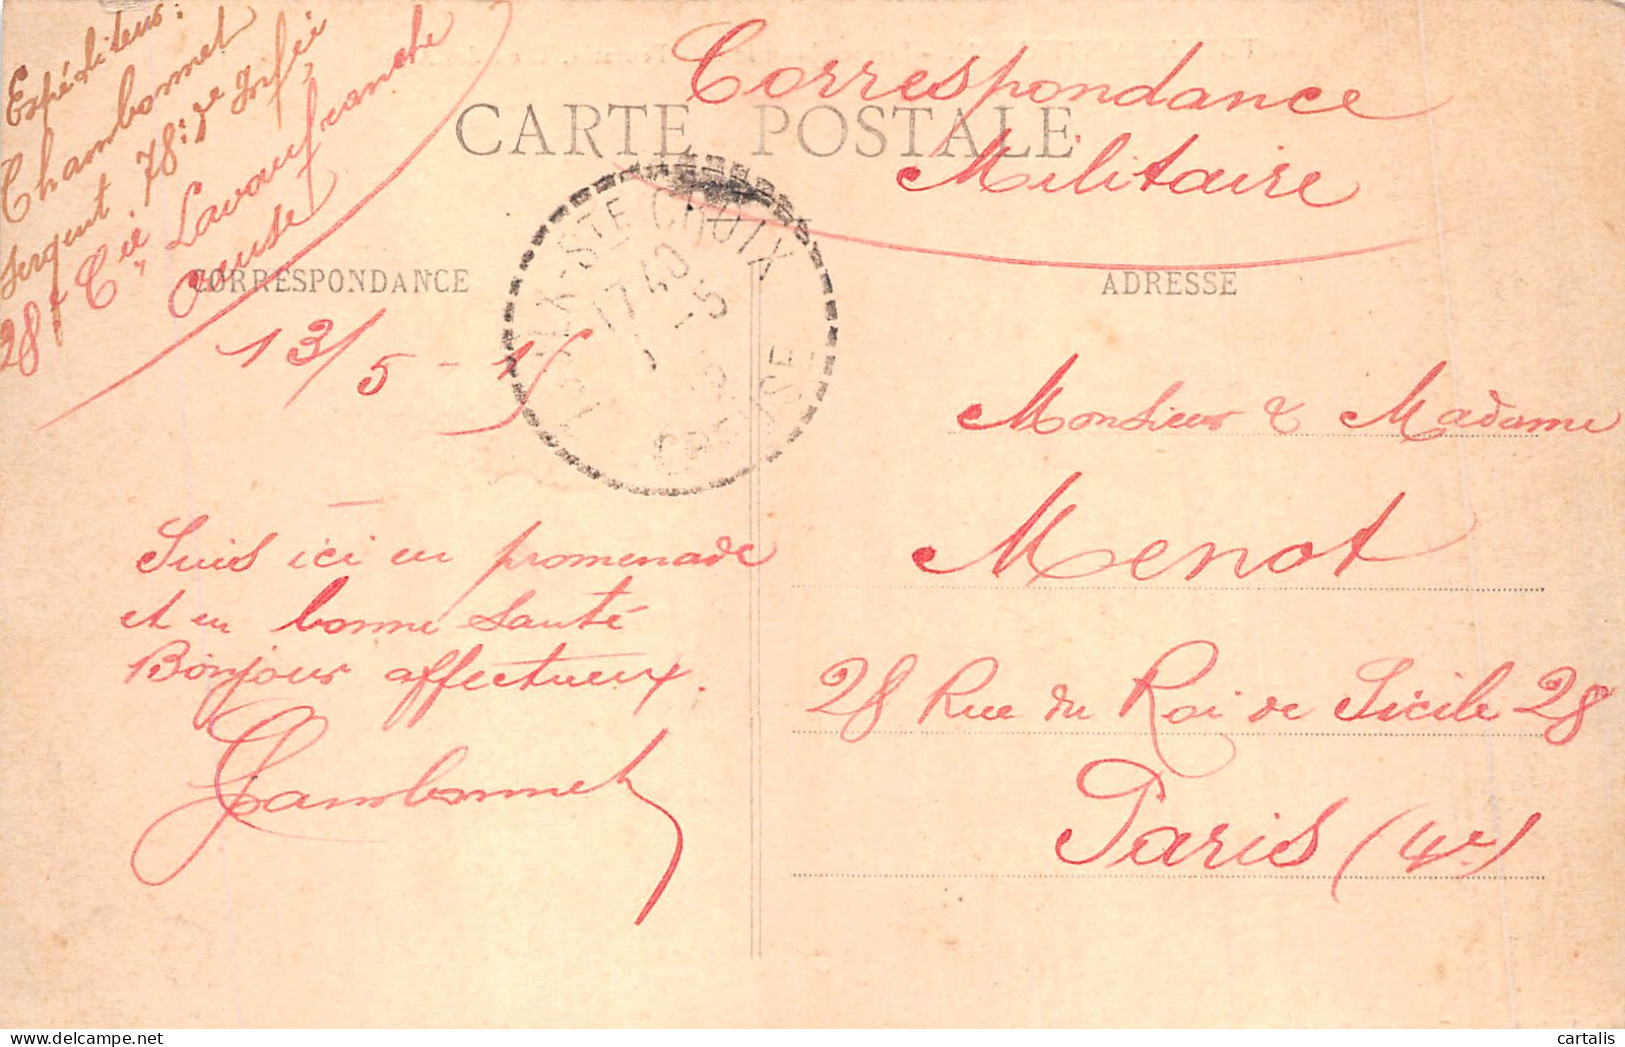 Expéditeur:
Chambonnet
Sergent 78: de Infie
28e Cie Lavaufranche
Creuse
Correspondance
Militaire
CARTE POSTALE
STE CROIX
17 40
CREUSE
CORRESPONDANCE
ADRESSE
13/5-15
Suis ici en promenade
et en bonne santé
Bonjour affectueux.
Chambonnet
Monsieur & Madame
Menot
28 Rue du Roi de Sicile 28
Paris (4e)
delcampe.net
cartalis